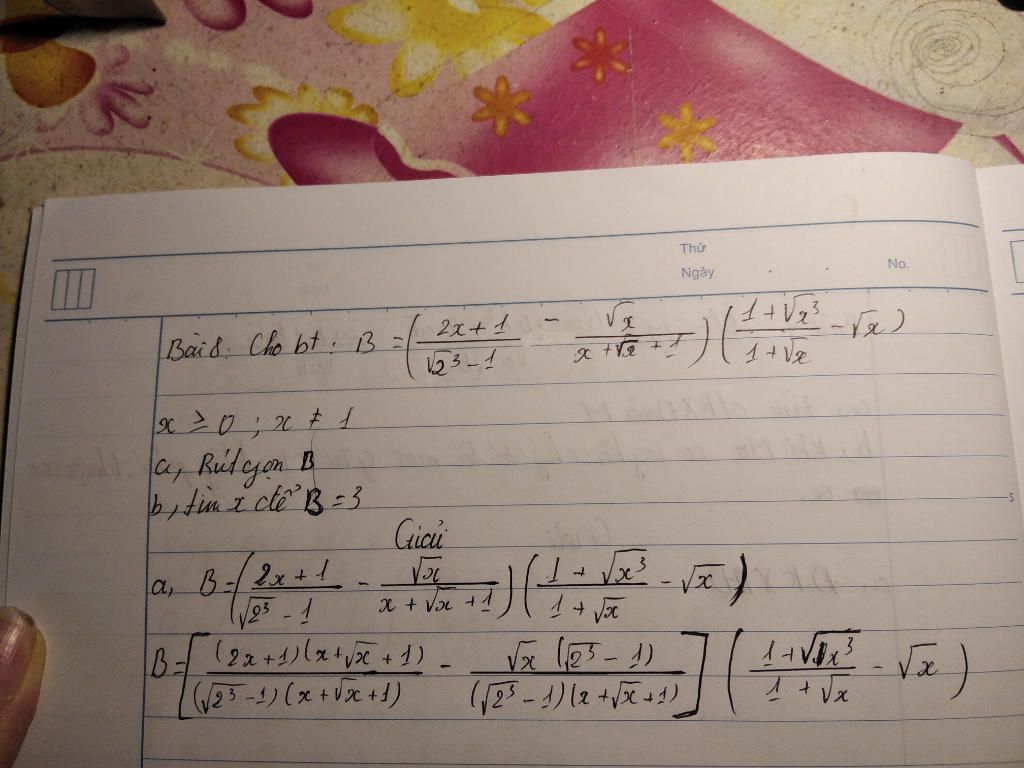 Thứ
Ngày
No.
Bài 8: Cho bt: B = ( (2x+1)/(√2³ - 1) - √x/(x+√x+1) ) ( (1+√x³)/(1+√x) - √x )
x ≥ 0 ; x ≠ 1
a, Rút gọn B
b, tìm x để B = 3
5
Giải
a, B = ( (2x+1)/(√2³ - 1) - √x/(x+√x+1) ) ( (1+√x³)/(1+√x) - √x )
B = [ (2x+1)(x+√x+1)/((√2³-1)(x+√x+1)) - √x(√2³-1)/((√2³-1)(x+√x+1)) ] ( (1+√x³)/(1+√x) - √x )